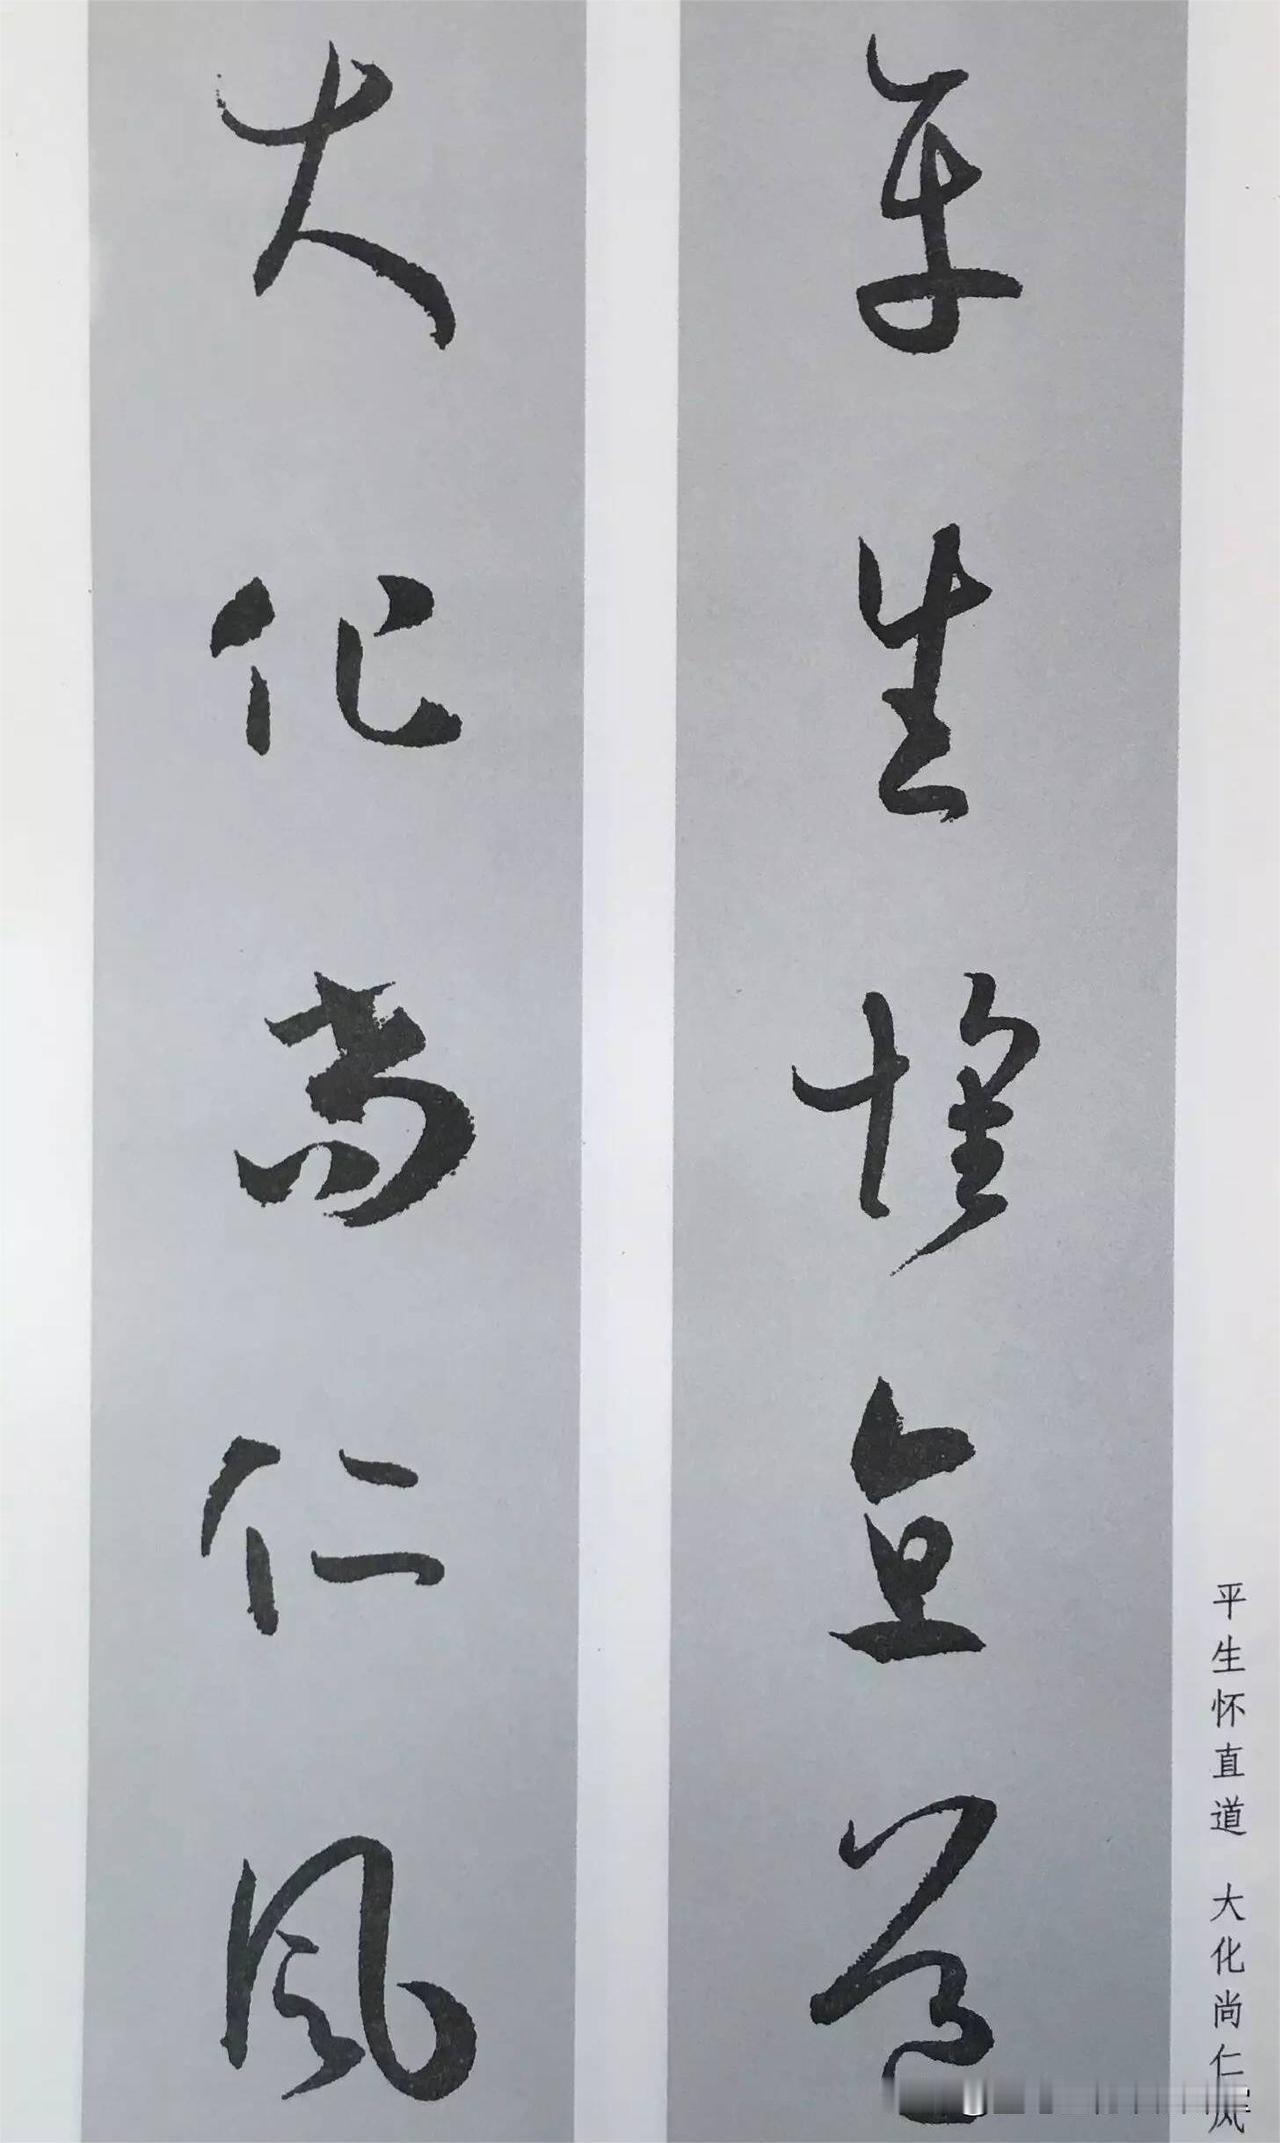 平生怀直道
大化尚仁风
平生怀直道 大化尚仁风